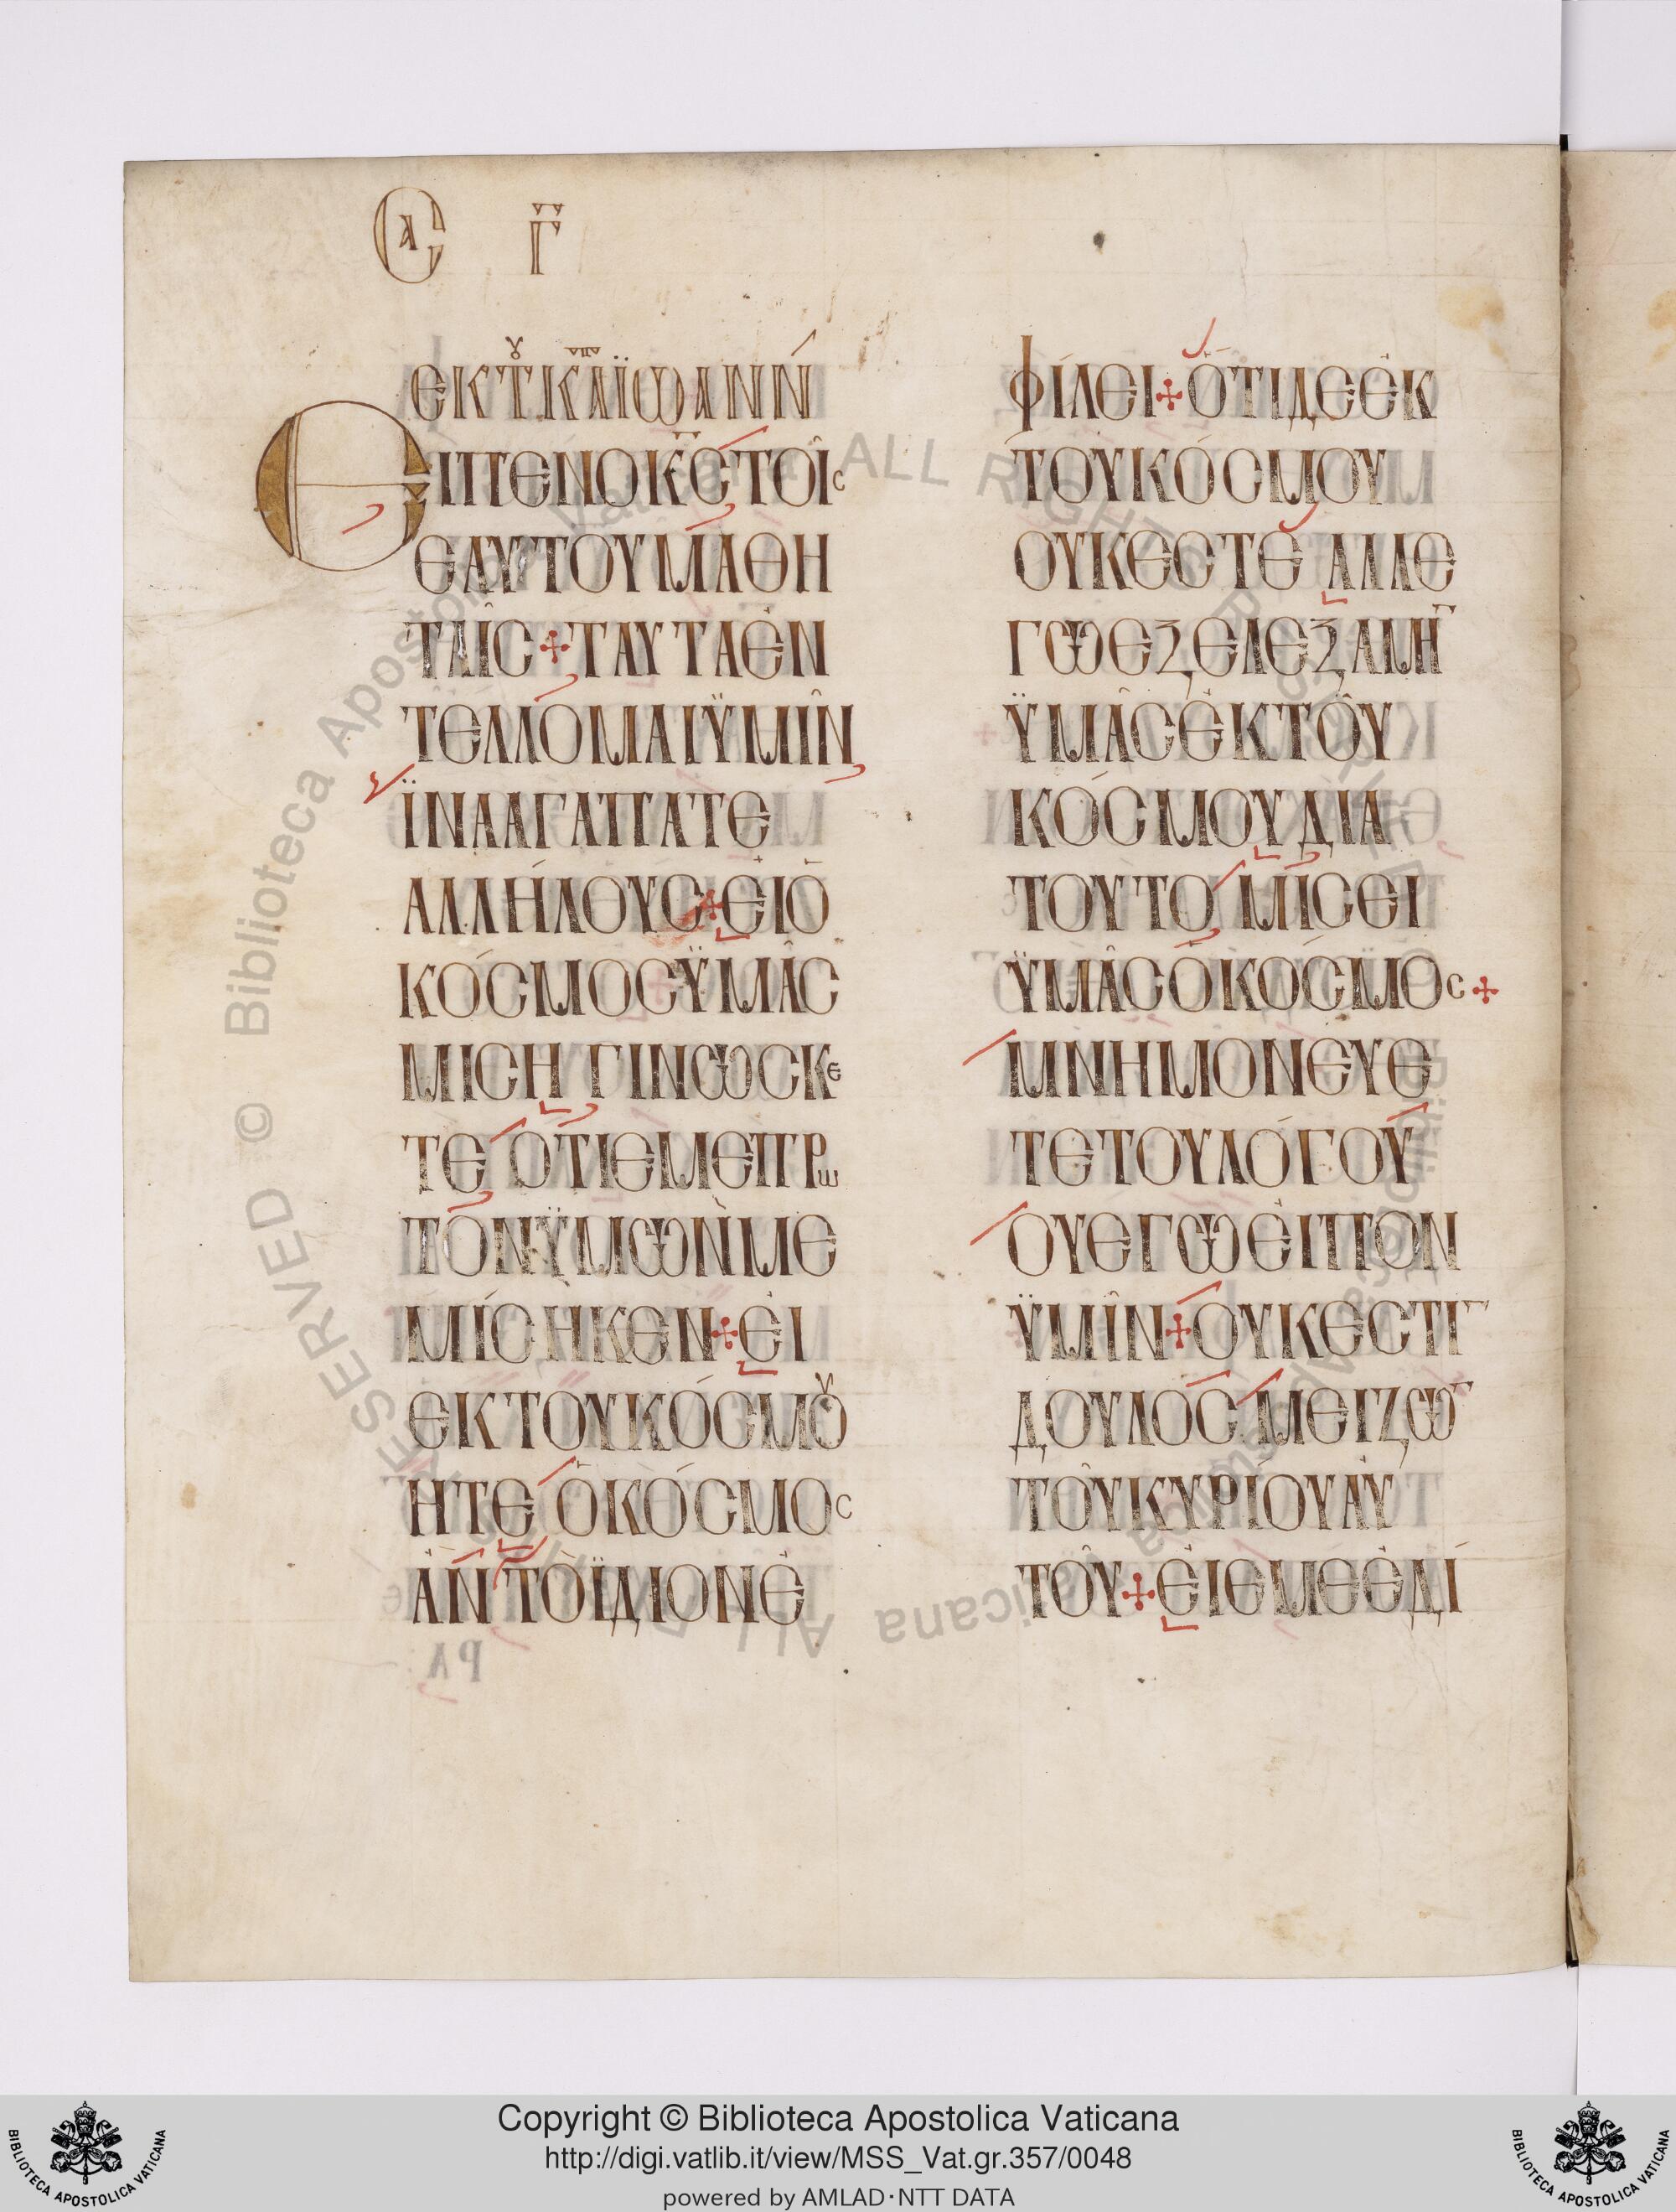 Ε Α Γ
ΕΚ Τ ΚΑΤ ΙΩΑΝΝ
ΕΙΠΕΝ Ο ΚС ΤΟΙС
ΕΑΥΤΟΥ ΜΑΘΗ
ΤΑΙС + ΤΑΥΤΑ ΕΝ
ΤΕΛΛΟΜΑΙ ΫΜΙΝ
ΪΝΑ ΑΓΑΠΑΤΕ
ΑΛΛΗΛΟΥС + ΕΙ Ο
ΚΟСΜΟС ΫΜΑС
ΜΙСΗ ΓΙΝΩСΚΕ
ΤΕ ΟΤΙ ΕΜΕ ΠΡΩ
ΤΟΝ ΫΜΩΝ ΜΕ
ΜΙСΗΚΕΝ + ΕΙ
ΕΚ ΤΟΥ ΚΟСΜΟΥ
ΗΤΕ Ο ΚΟСΜΟС
ΑΝ ΤΟ ΪΔΙΟΝ Ε
ΦΙΛΕΙ + ΟΤΙ ΔΕ ΕΚ
ΤΟΥ ΚΟСΜΟΥ
ΟΥΚ ΕСΤΕ ΑΛΛ Ε
ΓΩ ΕΞΕΛΕΞΑΜΗ
ΫΜΑС ΕΚ ΤΟΥ
ΚΟСΜΟΥ ΔΙΑ
ΤΟΥΤΟ ΜΙСΕΙ
ΫΜΑС Ο ΚΟСΜΟС +
ΜΝΗΜΟΝΕΥΕ
ΤΕ ΤΟΥ ΛΟΓΟΥ
ΟΥ ΕΓΩ ΕΙΠΟΝ
ΫΜΙΝ + ΟΥΚ ΕСΤΙ
ΔΟΥΛΟС ΜΕΙΖΩ
ΤΟΥ ΚΥΡΙΟΥ ΑΥ
ΤΟΥ + ΕΙ ΕΜΕ ΕΔΙ
© Biblioteca Apostolica Vaticana ALL RIGHTS RESERVED
Copyright © Biblioteca Apostolica Vaticana
http://digi.vatlib.it/view/MSS_Vat.gr.357/0048
powered by AMLAD·NTT DATA
BIBLIOTECA APOSTOLICA VATICANA
BIBLIOTECA APOSTOLICA VATICANA